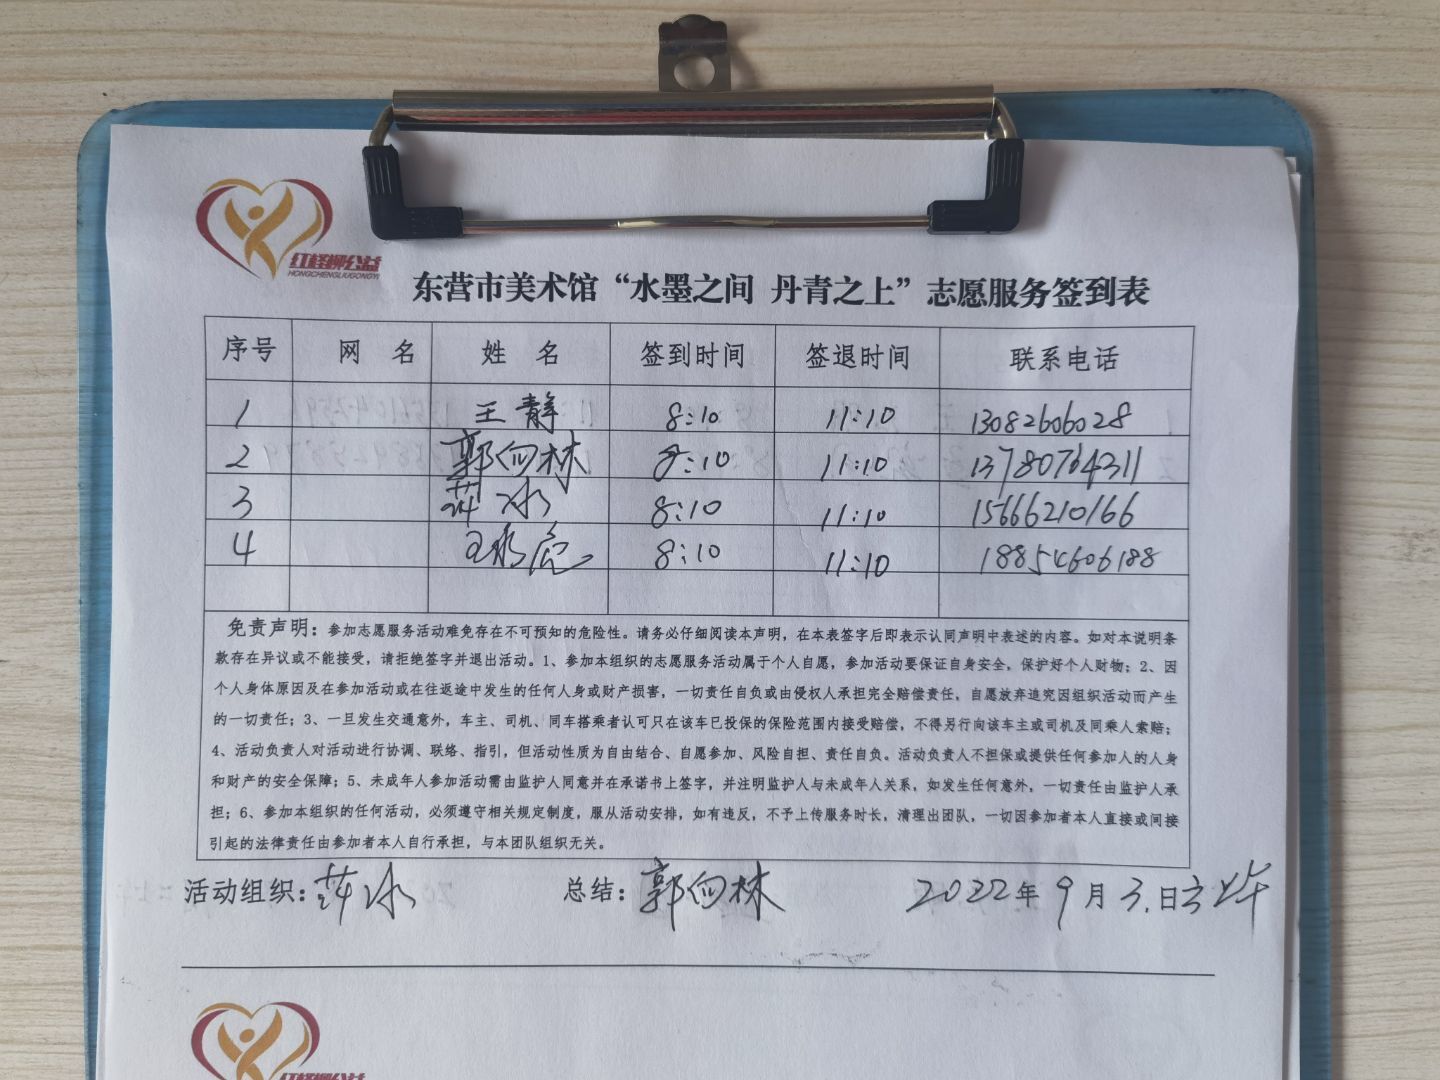 红柽柳公益
HONGCHENGLIUGONGYI
东营市美术馆“水墨之间 丹青之上”志愿服务签到表
序号 网 名 姓 名 签到时间 签退时间 联系电话
1 王静 8:10 11:10 13082606028
2 郭向林 8:10 11:10 13780764311
3 萍水 8:10 11:10 15666210166
4 8:10 11:10 18854606188
免责声明：参加志愿服务活动难免存在不可预知的危险性。请务必仔细阅读本声明，在本表签字后即表示认同声明中表述的内容。如对本说明条
款存在异议或不能接受，请拒绝签字并退出活动。1、参加本组织的志愿服务活动属于个人自愿，参加活动要保证自身安全，保护好个人财物；2、因
个人身体原因及在参加活动或在往返途中发生的任何人身或财产损害，一切责任自负或由侵权人承担完全赔偿责任，自愿放弃追究因组织活动而产生
的一切责任；3、一旦发生交通意外，车主、司机、同车搭乘者认可只在该车已投保的保险范围内接受赔偿，不得另行向该车主或司机及同乘人索赔；
4、活动负责人对活动进行协调、联络、指引，但活动性质为自由结合、自愿参加、风险自担、责任自负。活动负责人不担保或提供任何参加人的人身
和财产的安全保障；5、未成年人参加活动需由监护人同意并在承诺书上签字，并注明监护人与未成年人关系，如发生任何意外，一切责任由监护人承
担；6、参加本组织的任何活动，必须遵守相关规定制度，服从活动安排，如有违反，不予上传服务时长，清理出团队，一切因参加者本人直接或间接
引起的法律责任由参加者本人自行承担，与本团队组织无关。
活动组织：萍水 总结：郭向林 2022年9月3日上午
红柽柳公益